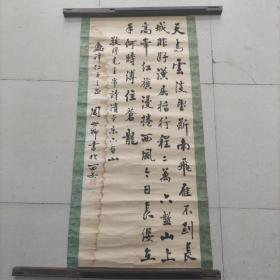 天高雲淡望斷南飛雁不到長
城非好漢屈指行程二萬六盤山上
高峯红旗漫捲西風今日長纓在
手何時縛住蒼龍
毛主席詩清平乐六盤山
書於西安